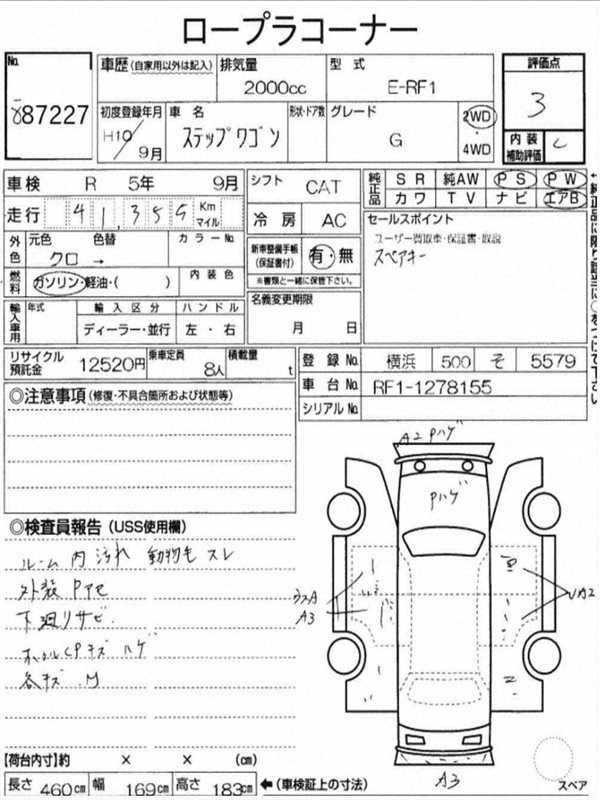 ロープラコーナー
No. 87227
車歴 (自家用以外は記入)
排気量 2000cc
型式 E-RF1
評価点 3
内装補助評価 C
初度登録年月 H10/9月
車名 ステップワゴン
形状・ドア数
グレード G
2WD
4WD
車検 R 5年 9月
走行 41,355 Km マイル
シフト CAT
冷房 AC
純正品 SR 純AW PS PW
カワ TV ナビ エアB
←純正品に限り該当に○をつけて下さい
外色 元色 色替 カラーNo.
クロ →
燃料 ガソリン・軽油・( ) 内装色
新車整備手帳(保証書付) 有・無
※書類と一緒に保管下さい。
セールスポイント
ユーザー買取車・保証書・取説
スペアキー
輸入車用 年式 輸入区分 ハンドル
ディーラー・並行 左・右
名義変更期限
月 日
リサイクル預託金 12520円
乗車定員 8人
積載量 t
登録No. 横浜 500 そ 5579
車台No. RF1-1278155
シリアルNo.
◎注意事項 (修復・不具合箇所および状態等)
◎検査員報告 (USS使用欄)
ルーム内汚れ 動物毛 スレ
外装Pアセ
下廻りサビ
キズ ハゲ
各キズ.M
A2 Pハゲ
Pハゲ
A3
UA2
A3
スペア
【荷台内寸】約 × × (cm)
長さ 460cm 幅 169cm 高さ 183cm ←(車検証上の寸法)